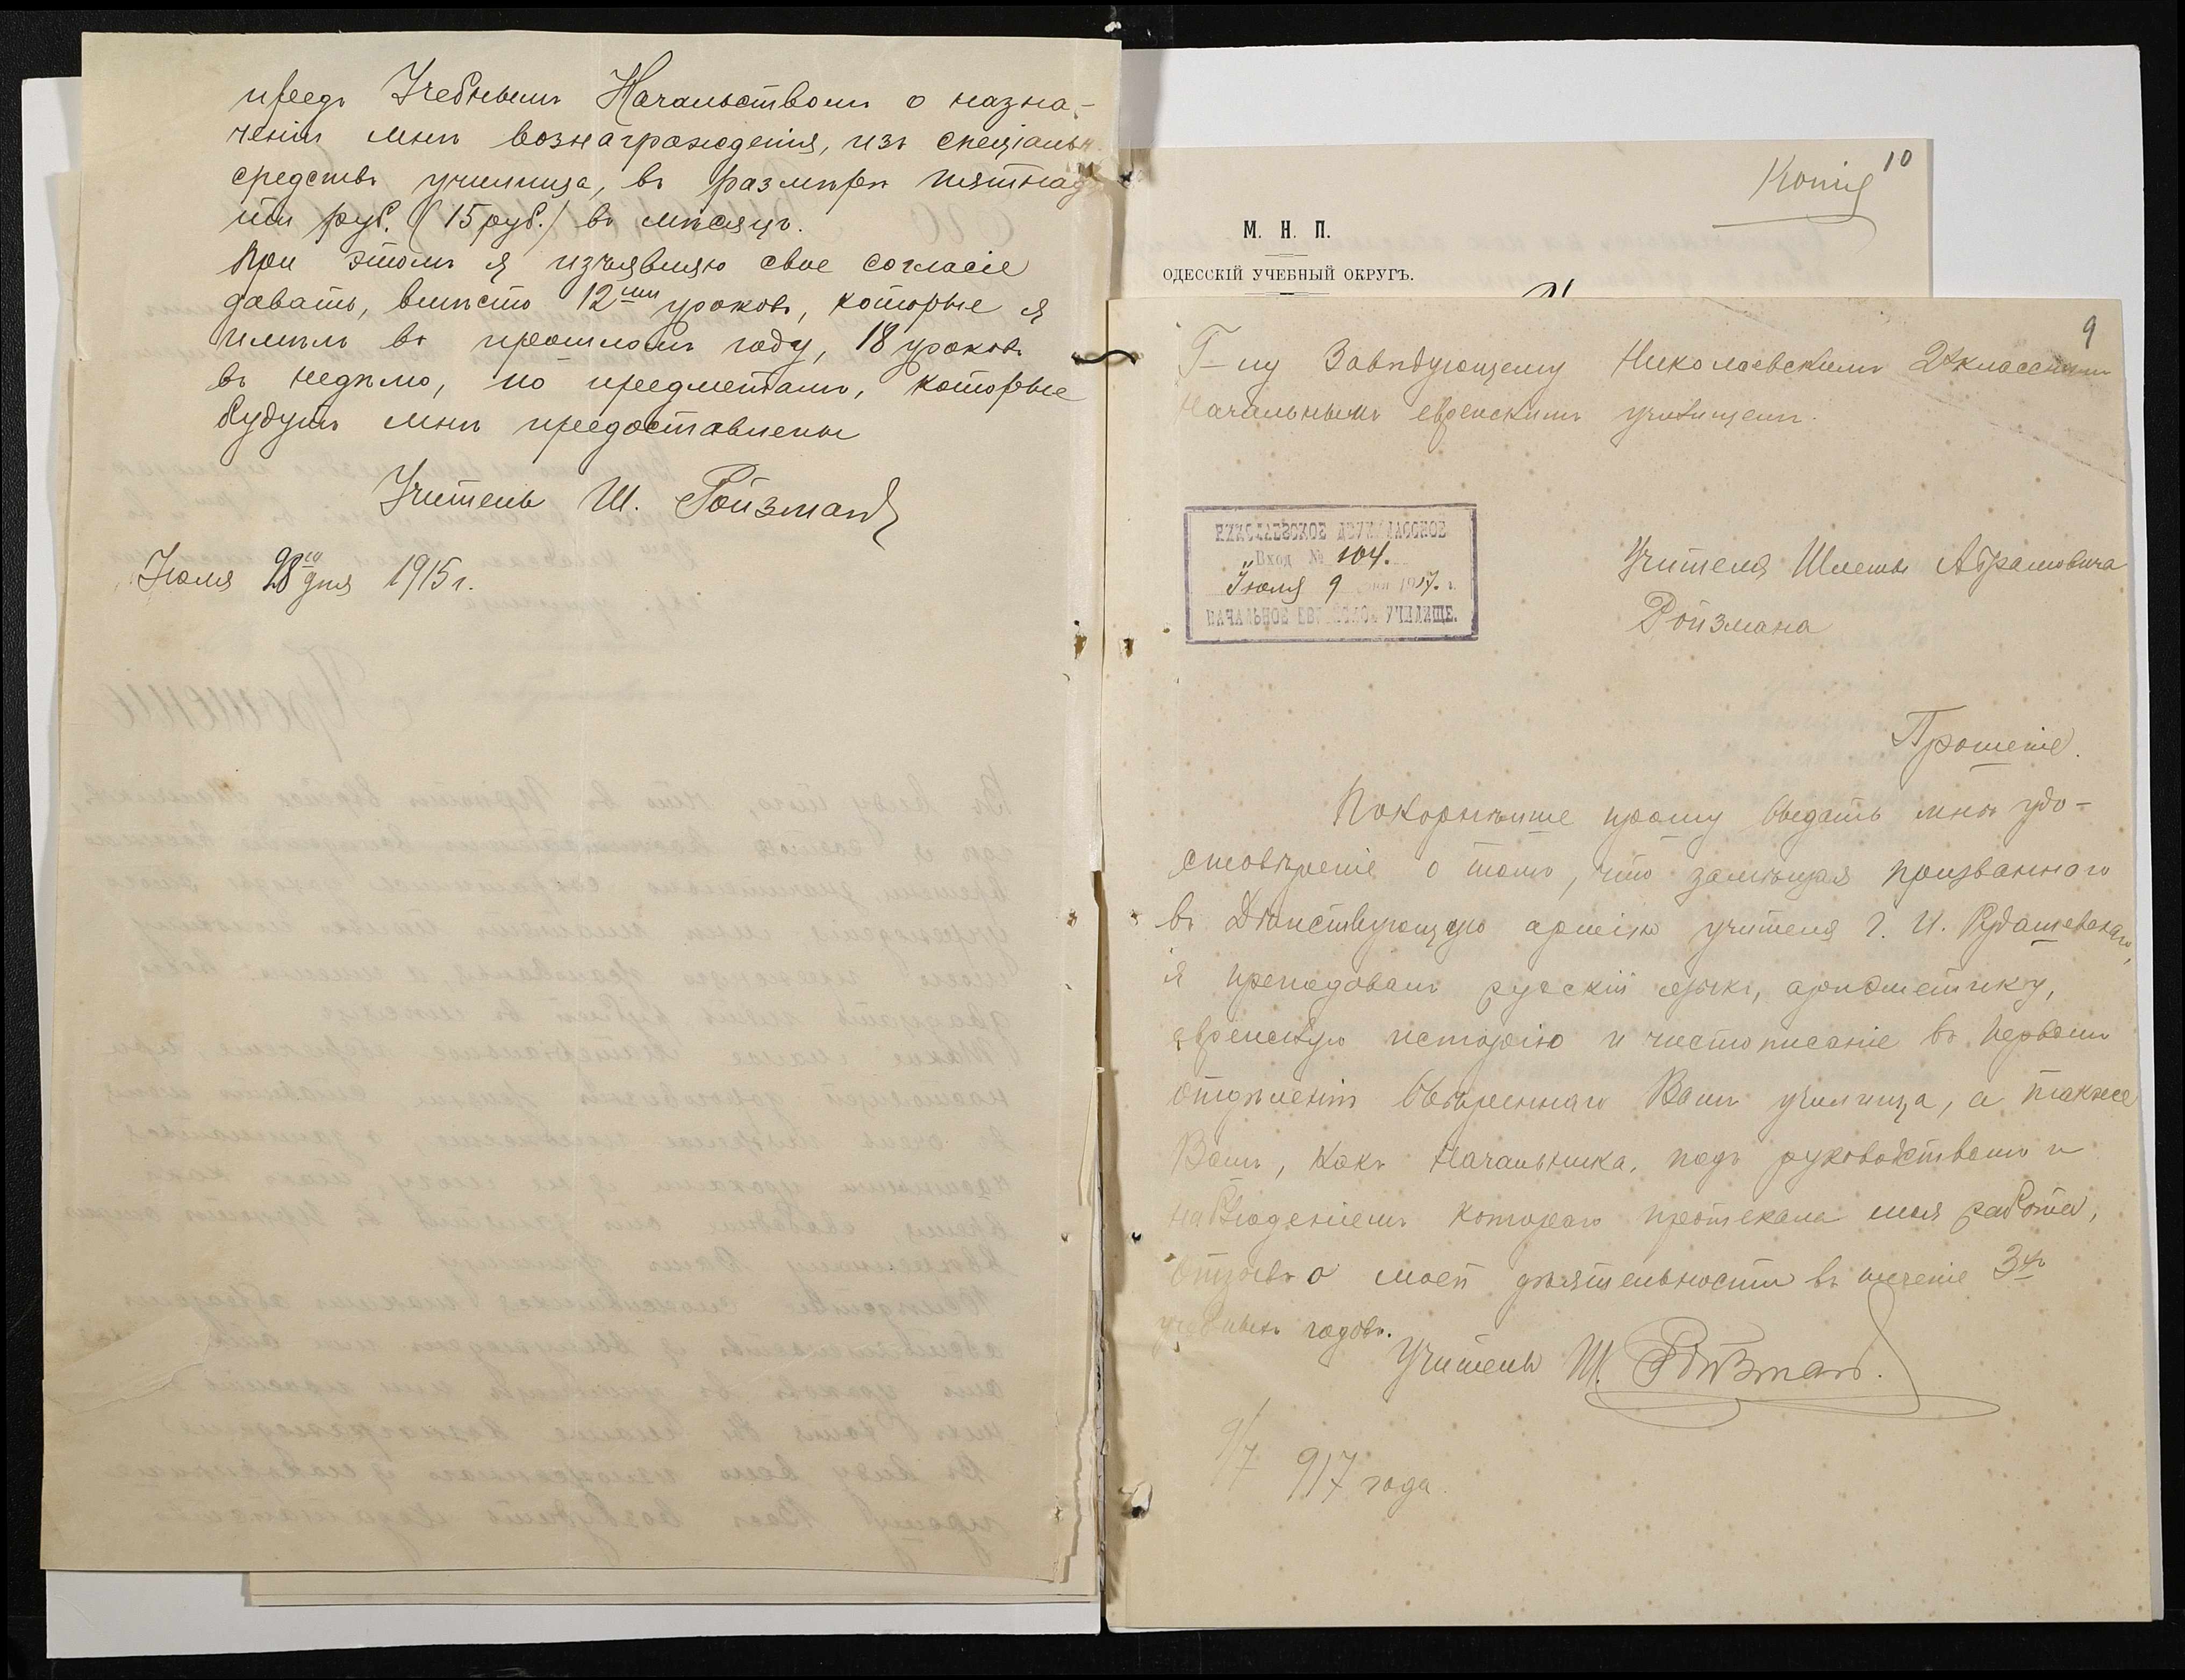 предъ Учебнымъ Начальствомъ о назна-
ченіи мнѣ вознагражденія, изъ спеціальн.
средствъ училища, въ размѣрѣ пятнадца
ти руб. (15 руб.) въ мѣсяцъ.
При этомъ я изъявляю свое согласіе
давать, вмѣсто 12ти уроковъ, которые я
имѣлъ въ прошломъ году, 18 уроковъ
въ недѣлю, по предметамъ, которые
будутъ мнѣ предоставлены
Учитель Ш. Ройзманъ
Іюля 28го дня 1915 г.
Копія 10
М. Н. П.
ОДЕССКІЙ УЧЕБНЫЙ ОКРУГЪ.
9
Г-ну Завѣдующему Николаевскимъ 2хкласснымъ
Начальнымъ еврейскимъ училищемъ.
НИКОЛАЕВСКОЕ ДВУХКЛАССНОЕ
Вход № 104.
Іюля 9 1917 г.
НАЧАЛЬНОЕ ЕВРЕЙСКОЕ УЧИЛИЩЕ.
Учителя Шлемы Абрамовича
Ройзмана
Прошеніе.
Покорнѣйше прошу выдать мнѣ удо-
стовѣреніе о томъ, что замѣщая призваннаго
въ Дѣйствующую армію учителя Г. И. Рудашевскаго,
я преподавалъ русскій языкъ, ариѳметику,
еврейскую исторію и чистописаніе въ первомъ
отдѣленіи ввѣреннаго Вамъ училища, а также
Вашъ, какъ Начальника, подъ руководствомъ и
наблюденіемъ котораго протекала моя работа,
отзывъ о моей дѣятельности въ теченіе 3хъ
учебныхъ годовъ.
Учитель Ш. Ройзманъ.
9/7 917 года.